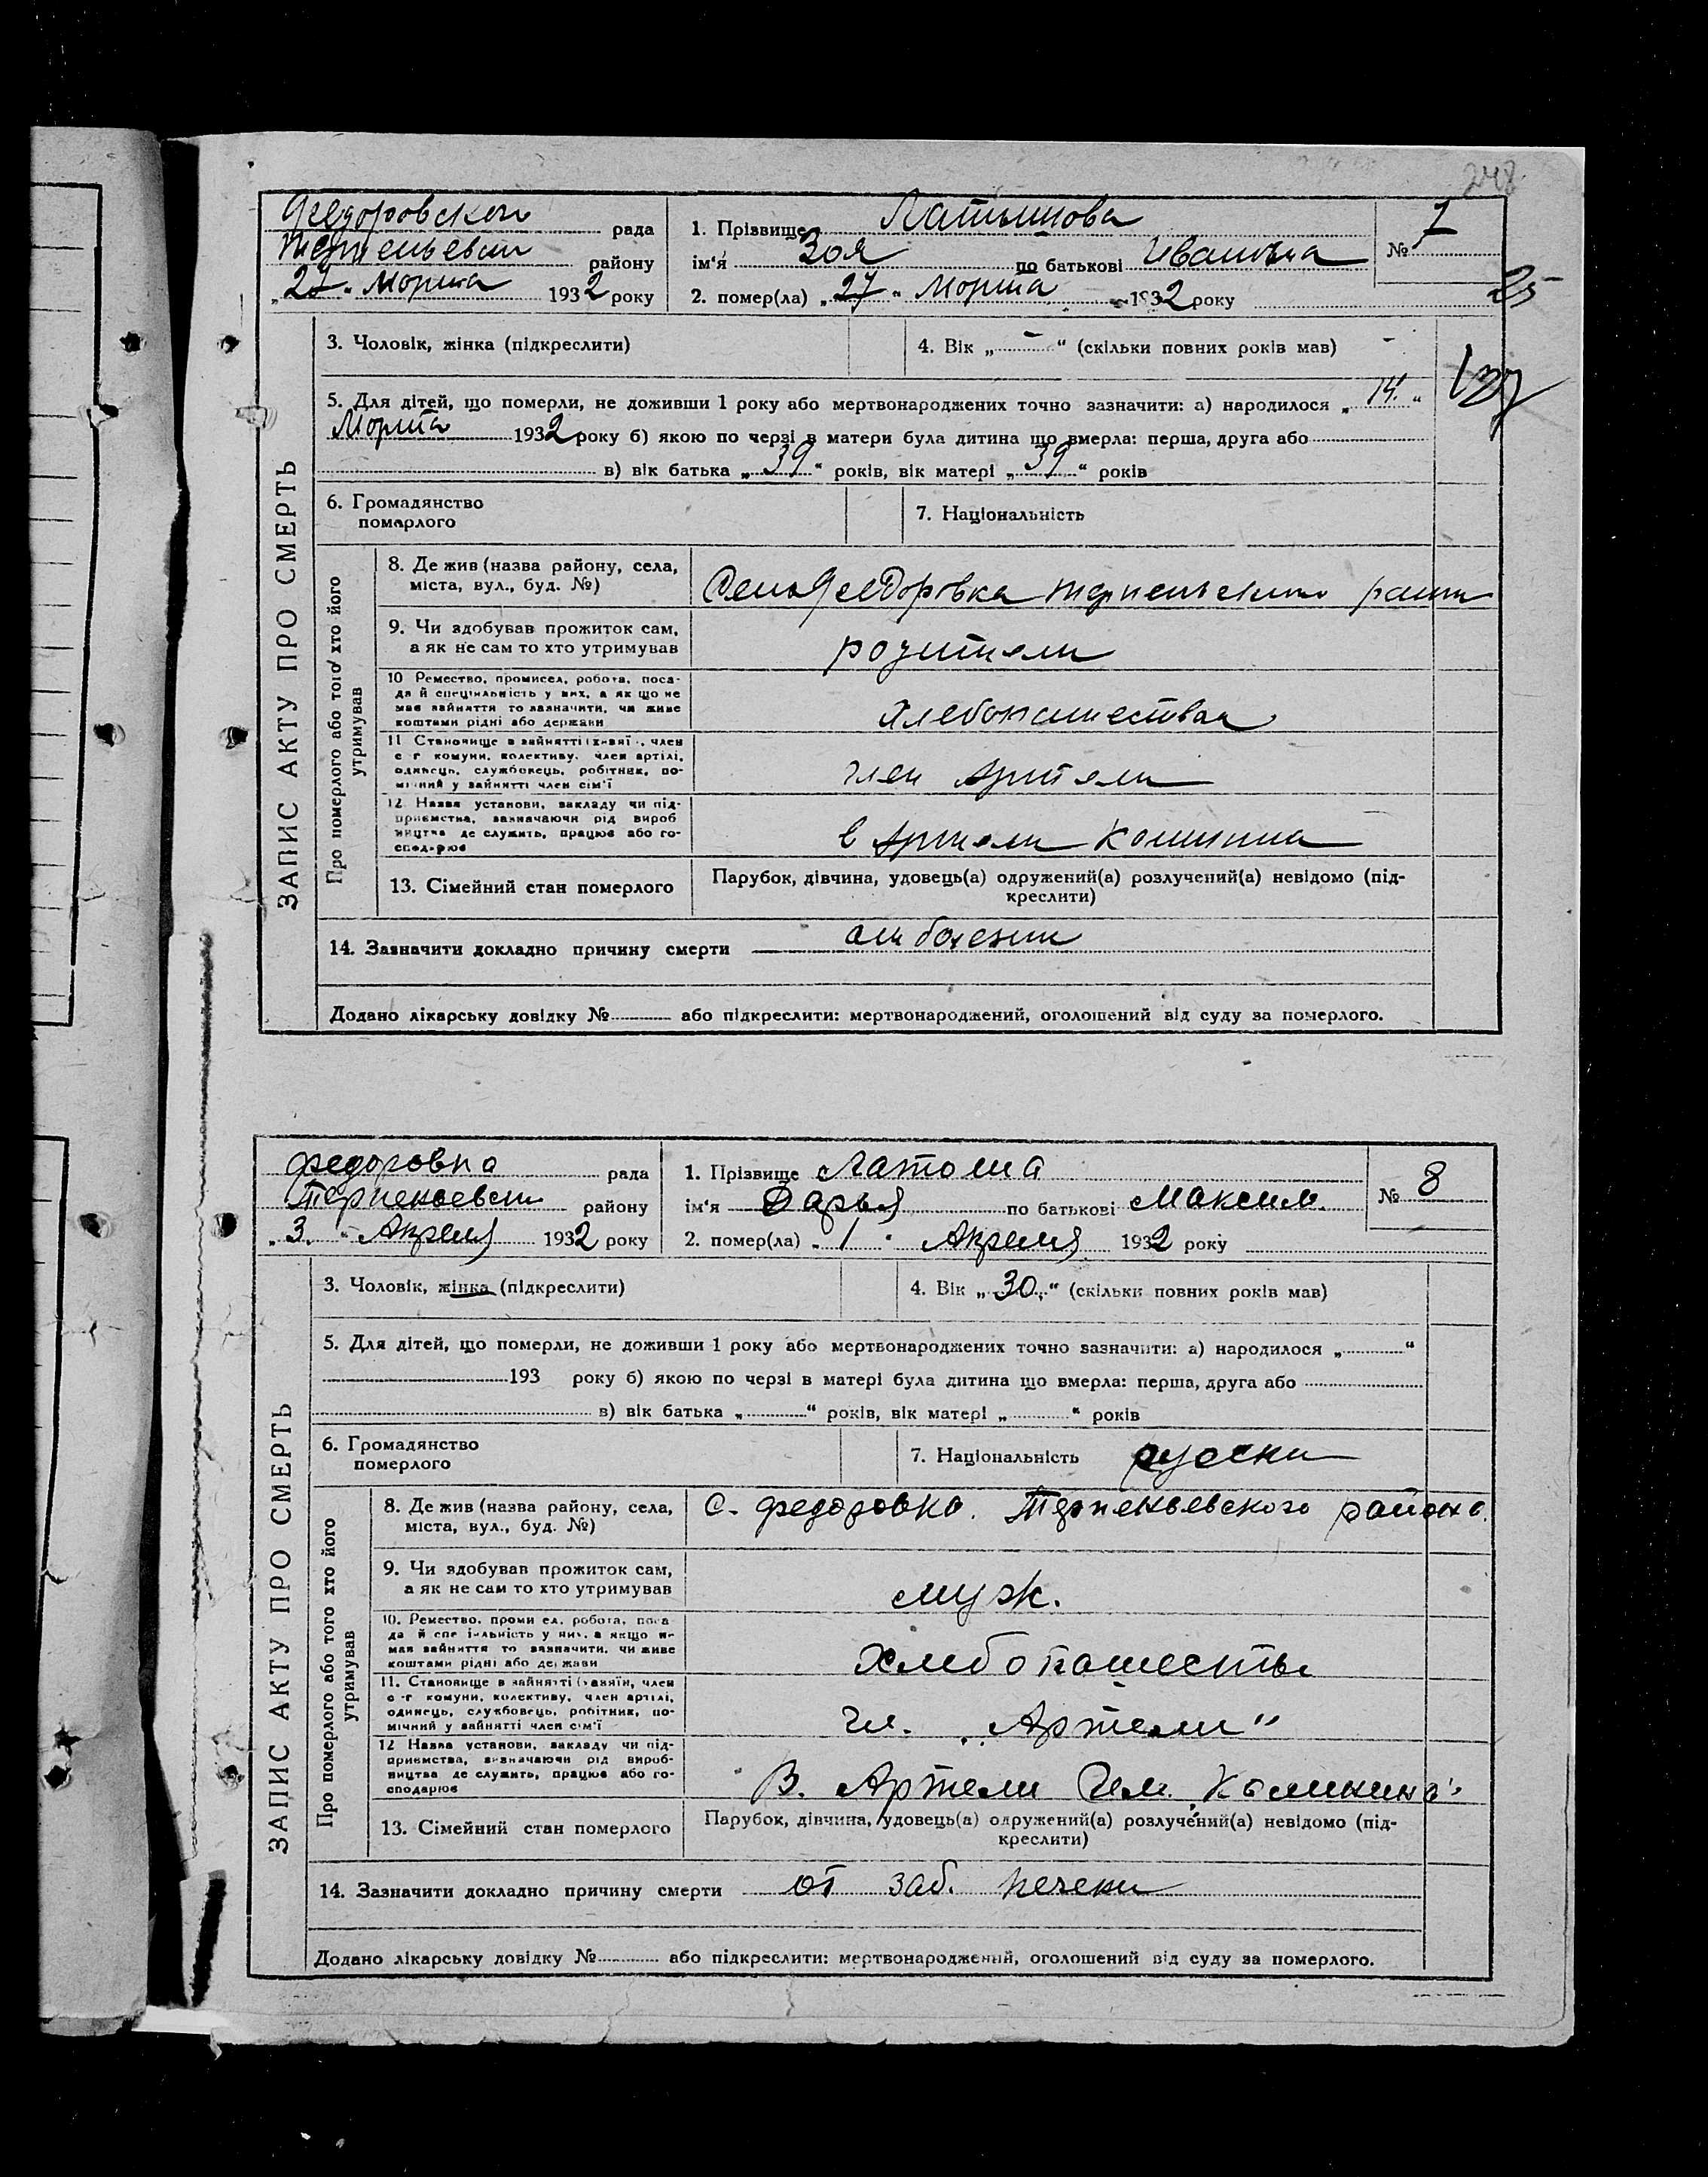 248
Федоровской рада
района
„27“ Марта 1932 року
1. Прізвище Латышова
ім'я Зоя по батькові Ивановна
2. помер(ла) „27“ Марта 1932 року
№ 7
25
127
ЗАПИС АКТУ ПРО СМЕРТЬ
3. Чоловік, жінка (підкреслити)
4. Вік „-“ (скільки повних років мав)
5. Для дітей, що померли, не доживши 1 року або мертвонароджених точно зазначити: а) народилося „14.“
Марта 1932 року б) якою по черзі в матери була дитина що вмерла: перша, друга або
в) вік батька „39“ років, вік матері „39“ років
6. Громадянство
померлого
7. Національність
Про померлого або того хто його
утримував
8. Де жив (назва району, села,
міста, вул., буд. №)
Село Федоровка
9. Чи здобував прожиток сам,
а як не сам то хто утримував
родители
10 Ремество, промисел, робота, поса-
да й спеціяльність у них, а як що не
має зайняття то зазначити, чи живе
коштами рідні або держави
11 Становище в зайнятті (хазяїн, член
с г комуни, колективу, член артілі,
одинець, службовець, робітник, по-
мічний у зайнятті член сім'ї
член Артели
12 Назва установи, закладу чи під-
приємства, зазначаючи рід вироб
ництва де служить, працює або го-
сподарює
в Артели
13. Сімейний стан померлого
Парубок, дівчина, удовець(а) одружений(а) розлучений(а) невідомо (під-
креслити)
14. Зазначити докладно причину смерти от болезни
Додано лікарську довідку № або підкреслити: мертвонароджений, оголошений від суду за померлого.
Федоровка рада
району
„3.“ Апреля 1932 року
1. Прізвище
ім'я Дарья по батькові Максим.
2. помер(ла) „1“ Апреля 1932 року
№ 8
ЗАПИС АКТУ ПРО СМЕРТЬ
3. Чоловік, жінка (підкреслити)
4. Вік „30“ (скільки повних років мав)
5. Для дітей, що померли, не доживши 1 року або мертвонароджених точно зазначити: а) народилося „“
193 року б) якою по черзі в матері була дитина що вмерла: перша, друга або
в) вік батька „“ років, вік матері „“ років
6. Громадянство
померлого
7. Національність руски
Про померлого або того хто його
утримував
8. Де жив (назва району, села,
міста, вул., буд. №)
с. Федоровка. Терпеньевского района.
9. Чи здобував прожиток сам,
а як не сам то хто утримував
муж.
10. Ремество, промисел, робота, поса
да й спеціяльність у них, а якщо не-
має зайняття то зазначити, чи живе
коштами рідні або держави
11. Становище в зайнятті (хазяїн, член
с-г комуни, колективу, член артілі,
одинець, службовець, робітник, по-
мічний у зайнятті член сім'ї
чл. „Артели“
12 Назва установи, закладу чи під-
приємства, зазначаючи рід вироб-
ництва де служить, працює або го-
сподарює
В. Артели Им. „Калинина“
13. Сімейний стан померлого
Парубок, дівчина, удовець(а) одружений(а) розлучений(а) невідомо (під-
креслити)
14. Зазначити докладно причину смерти от заб. печени
Додано лікарську довідку № або підкреслити: мертвонароджений, оголошений від суду за померлого.